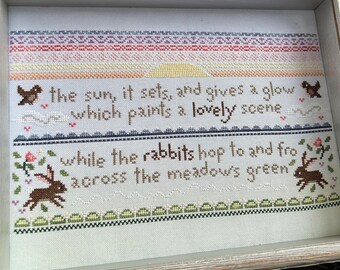 the sun, it sets, and gives a glow
which paints a lovely scene
while the rabbits hop to and fro
across the meadows green